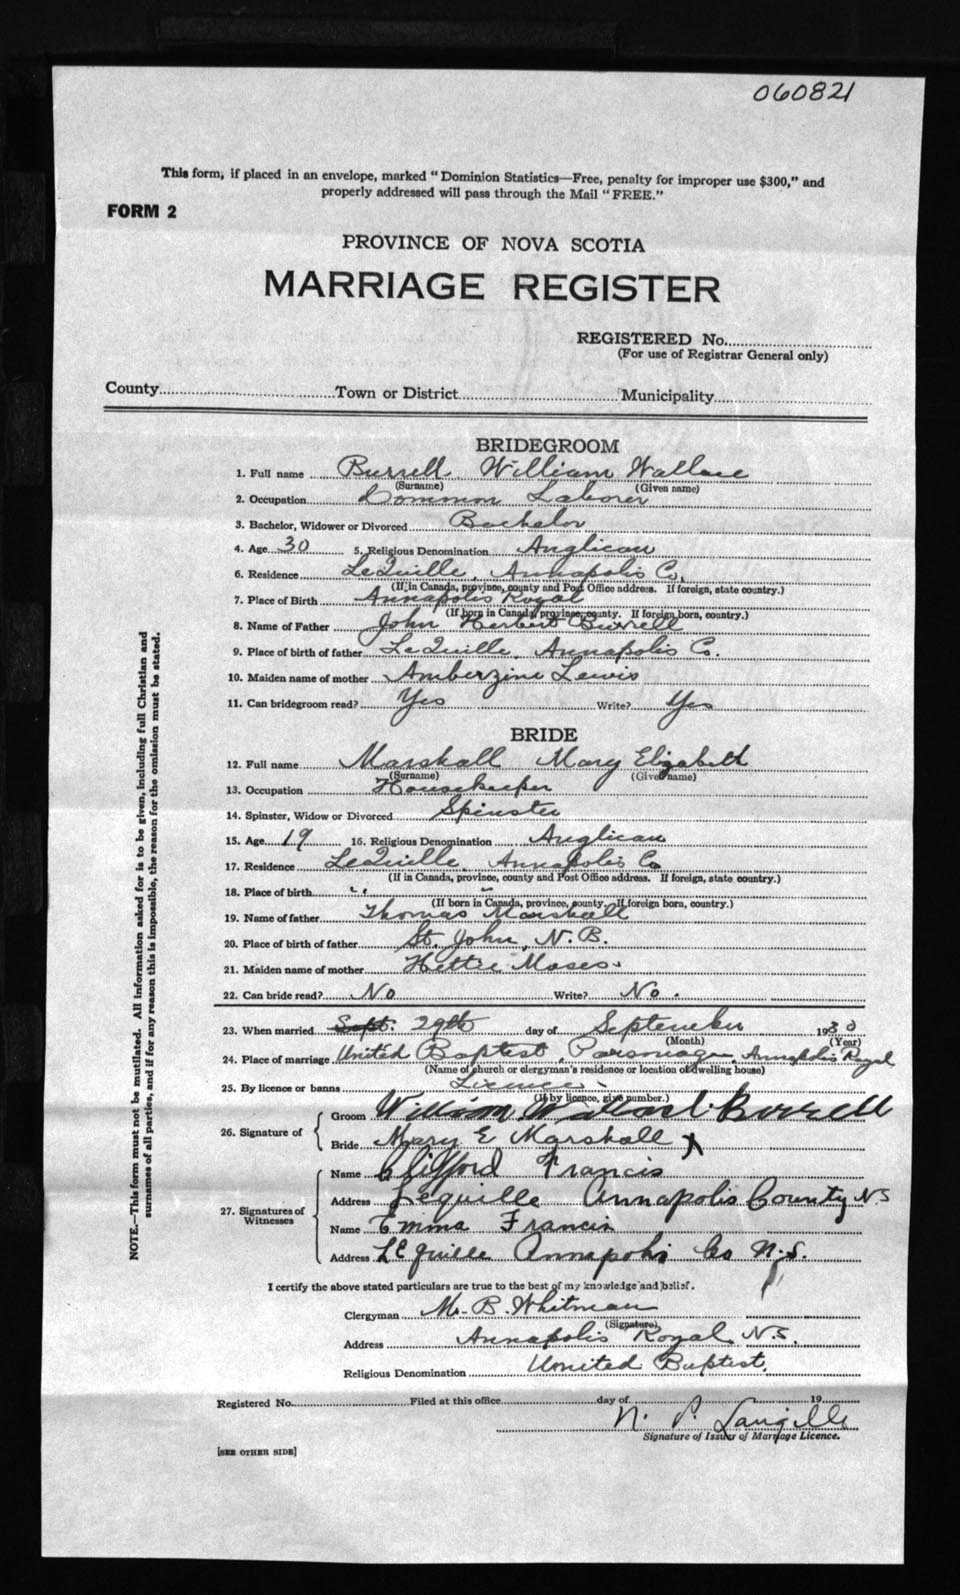 060821
This form, if placed in an envelope, marked "Dominion Statistics—Free, penalty for improper use $300," and
properly addressed will pass through the Mail "FREE."
FORM 2
PROVINCE OF NOVA SCOTIA
MARRIAGE REGISTER
REGISTERED No.
(For use of Registrar General only)
County Town or District Municipality
BRIDEGROOM
1. Full name Burrell William Wallace
(Surname) (Given name)
2. Occupation Common Laborer
3. Bachelor, Widower or Divorced Bachelor
4. Age 30 5. Religious Denomination Anglican
6. Residence LeQuille, Annapolis Co.
(If in Canada, province, county and Post Office address. If foreign, state country.)
7. Place of Birth Annapolis Royal
(If born in Canada, province, county. If foreign born, country.)
8. Name of Father John Herbert Burrell
9. Place of birth of father LeQuille Annapolis Co.
10. Maiden name of mother Amberzine Lewis
11. Can bridegroom read? Yes Write? Yes
BRIDE
12. Full name Marshall Mary Elizabeth
(Surname) (Given name)
13. Occupation Housekeeper
14. Spinster, Widow or Divorced Spinster
15. Age 19 16. Religious Denomination Anglican
17. Residence LeQuille, Annapolis Co
(If in Canada, province, county and Post Office address. If foreign, state country.)
18. Place of birth " "
(If born in Canada, province, county. If foreign born, country.)
19. Name of father Thomas Marshall
20. Place of birth of father St. John, N.B.
21. Maiden name of mother Hettie Moses
22. Can bride read? No Write? No.
23. When married Sept. 29th day of September 1930
(Month) (Year)
24. Place of marriage United Baptist Parsonage, Annapolis Royal
(Name of church or clergyman's residence or location of dwelling house)
25. By licence or banns Licence
(If by licence, give number.)
26. Signature of
Groom William Wallace Burrell
Bride Mary E Marshall X
27. Signatures of Witnesses
Name Clifford Francis
Address Lequille Annapolis County NS
Name Emma Francis
Address LEquille Annapolis Co N.S.
I certify the above stated particulars are true to the best of my knowledge and belief.
Clergyman M. B. Whitman
(Signature)
Address Annapolis Royal, N.S.
Religious Denomination United Baptist.
Registered No. Filed at this office day of 19
N. P. Langille
Signature of Issuer of Marriage Licence.
[SEE OTHER SIDE]
NOTE.—This form must not be mutilated. All information asked for is to be given, including full Christian and
surnames of all parties, and if for any reason this is impossible, the reason for the omission must be stated.